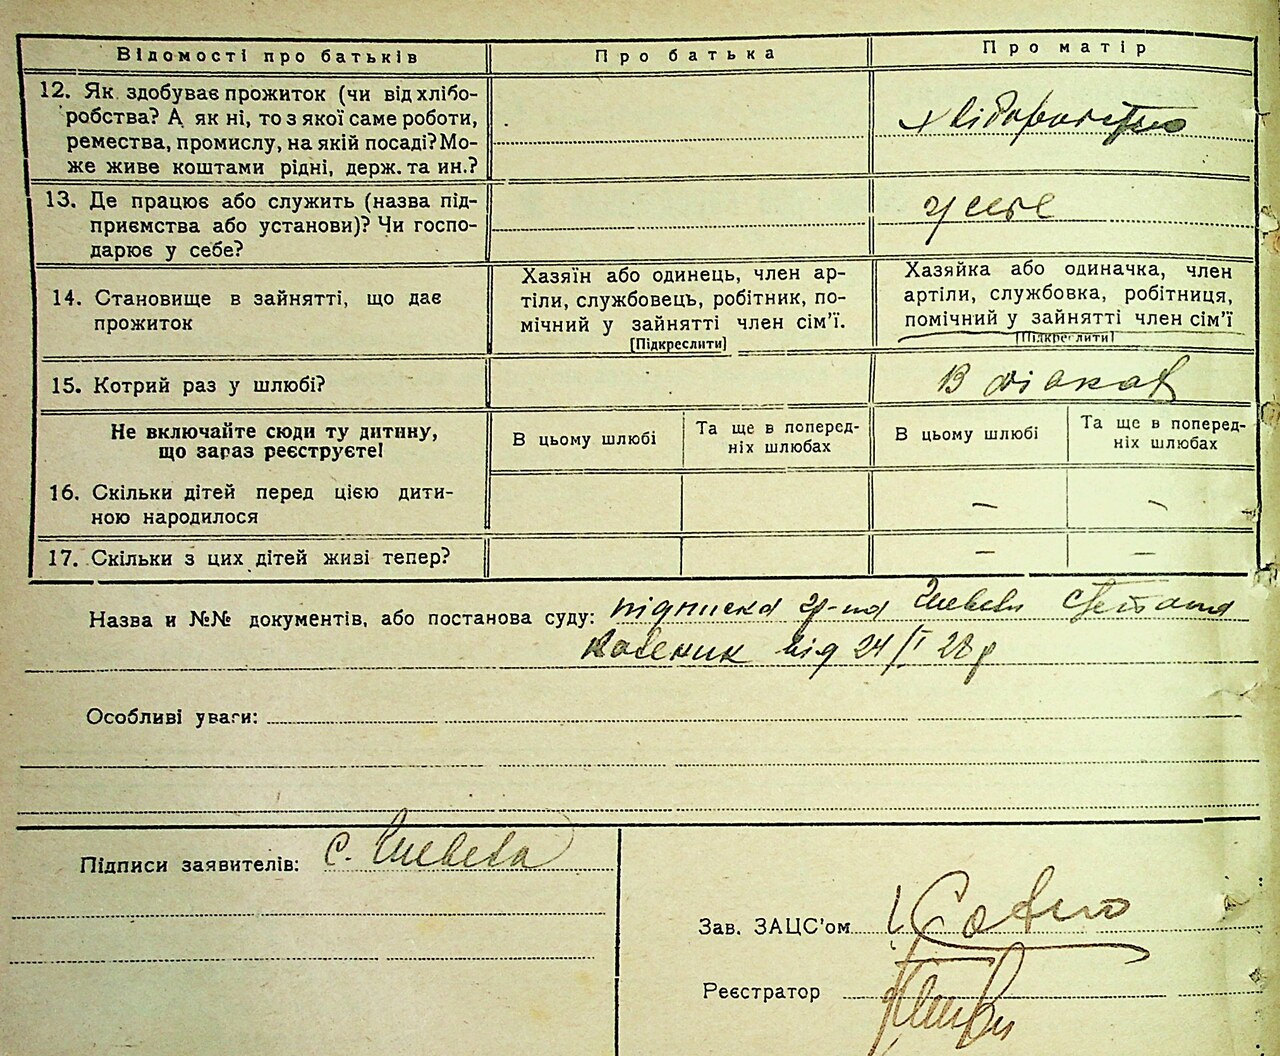 Відомості про батьків
Про батька
Про матір
12. Як здобуває прожиток (чи від хлібо-
робства? А як ні, то з якої саме роботи,
ремества, промислу, на якій посаді? Мо-
же живе коштами рідні, держ. та ин.?
хліборобство
13. Де працює або служить (назва під-
приємства або установи)? Чи госпо-
дарює у себе?
у себе
14. Становище в зайнятті, що дає
прожиток
Хазяїн або одинець, член ар-
тіли, службовець, робітник, по-
мічний у зайнятті член сім'ї.
[Підкреслити]
Хазяйка або одиначка, член
артіли, службовка, робітниця,
помічний у зайнятті член сім'ї
[Підкреслити]
15. Котрий раз у шлюбі?
Не включайте сюди ту дитину,
що зараз реєструєте!
В цьому шлюбі
Та ще в поперед-
ніх шлюбах
В цьому шлюбі
Та ще в поперед-
ніх шлюбах
16. Скільки дітей перед цією дити-
ною народилося
— —
17. Скільки з цих дітей живі тепер?
— —
Назва и №№ документів, або постанова суду: підписка гр-на
від 24/I 28 р
Особливі уваги:
Підписи заявителів: С.
Зав. ЗАЦС'ом
Реєстратор